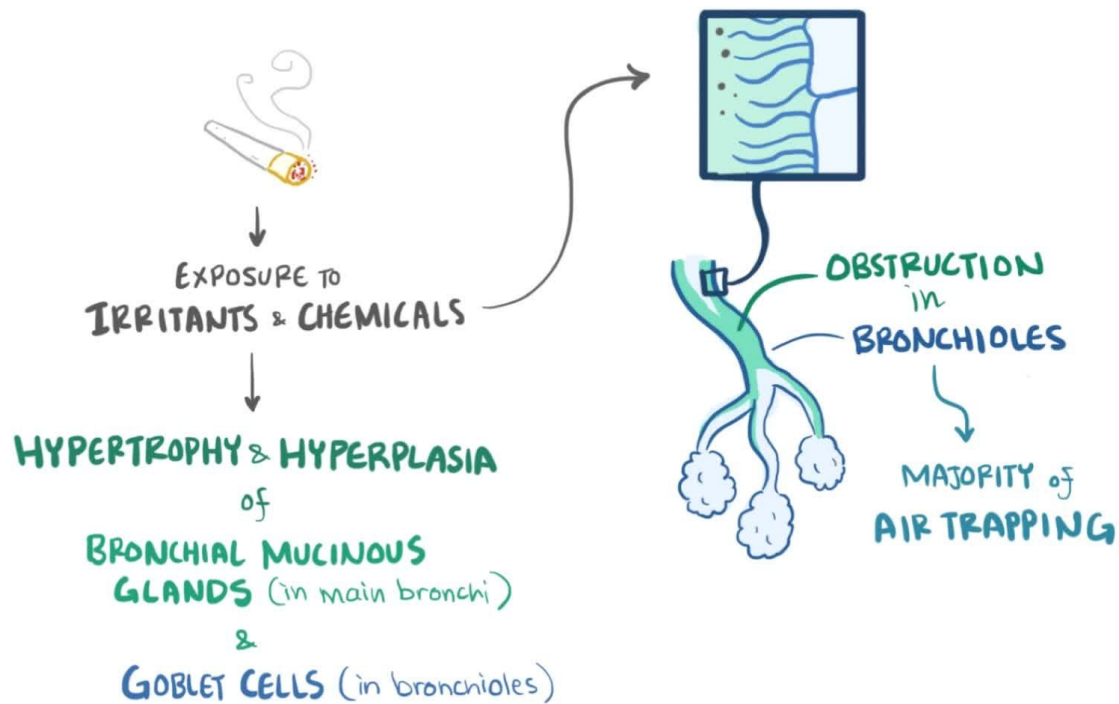 EXPOSURE TO
IRRITANTS & CHEMICALS
HYPERTROPHY & HYPERPLASIA
of
BRONCHIAL MUCINOUS
GLANDS (in main bronchi)
&
GOBLET CELLS (in bronchioles)
OBSTRUCTION
in
BRONCHIOLES
MAJORITY of
AIR TRAPPING